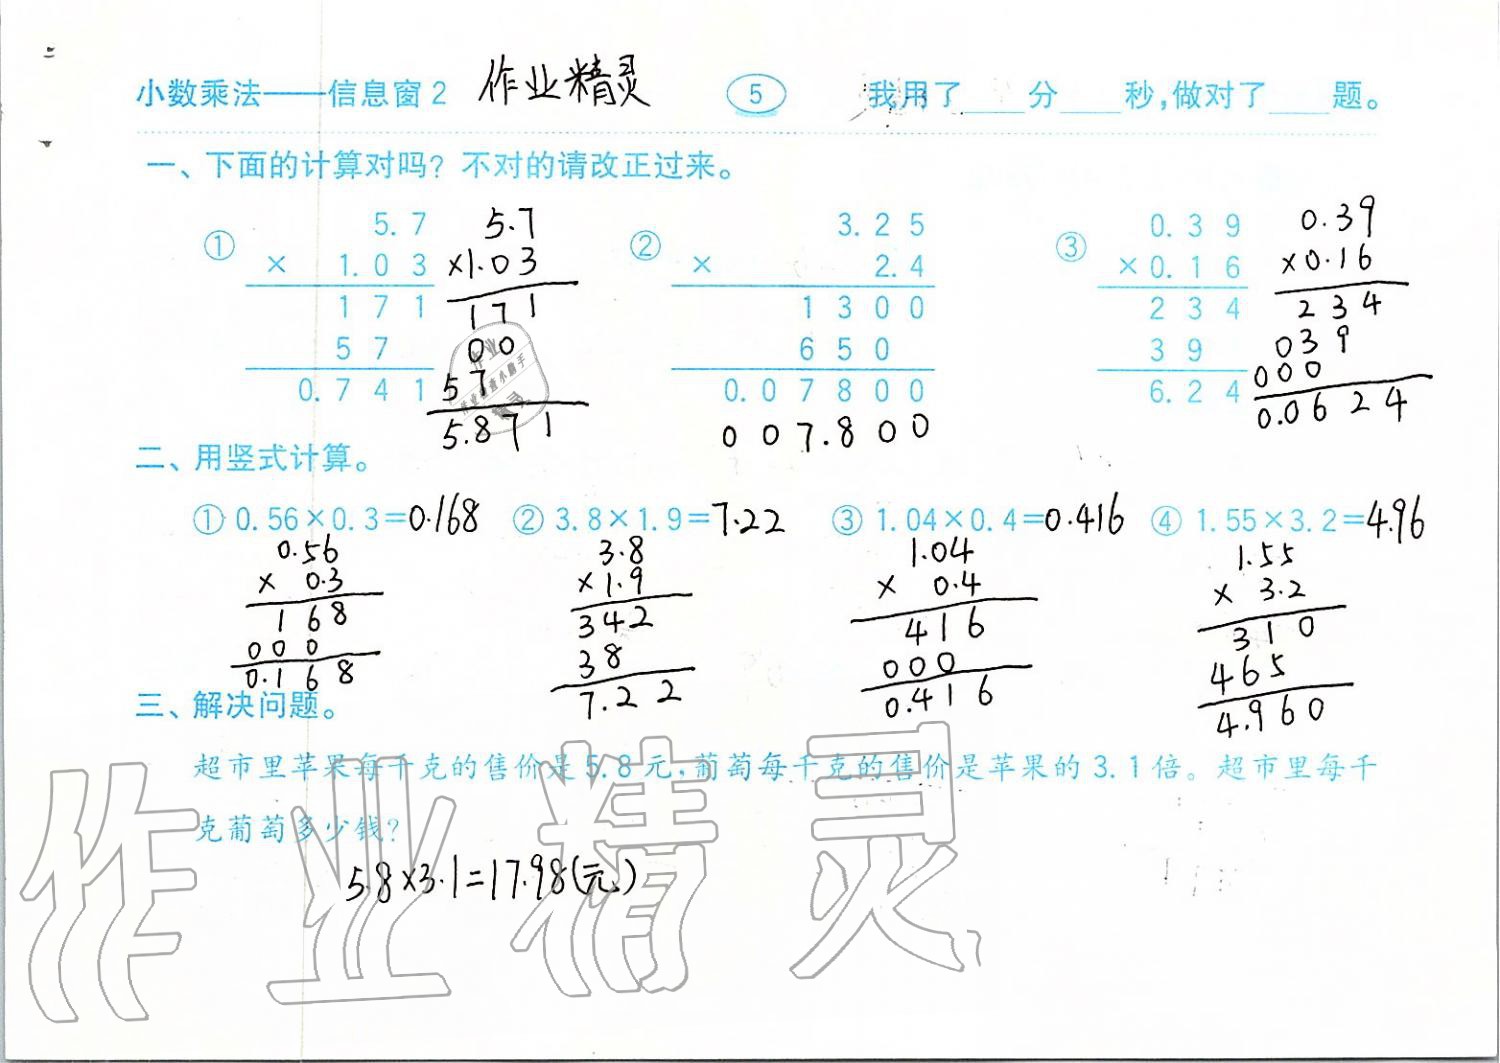 小数乘法——信息窗2 作业精灵 5 我用了____分____秒,做对了____题。
一、下面的计算对吗？不对的请改正过来。
① 5.7 5.7 ② 3.25 ③ 0.39 0.39
× 1.03 ×1.03 × 2.4 ×0.16 ×0.16
171 171 1300 234 234
57 00 650 39 039
0.741 57 0.07800 6.24 000
5.871 007.800 0.0624
二、用竖式计算。
① 0.56×0.3=0.168 ② 3.8×1.9=7.22 ③ 1.04×0.4=0.416 ④ 1.55×3.2=4.96
0.56 3.8 1.04 1.55
× 0.3 ×1.9 × 0.4 × 3.2
168 342 416 310
000 38 000 465
0.168 7.22 0.416 4.960
三、解决问题。
超市里苹果每千克的售价是5.8元,葡萄每千克的售价是苹果的3.1倍。超市里每千
克葡萄多少钱？
5.8×3.1=17.98(元)
作业精灵